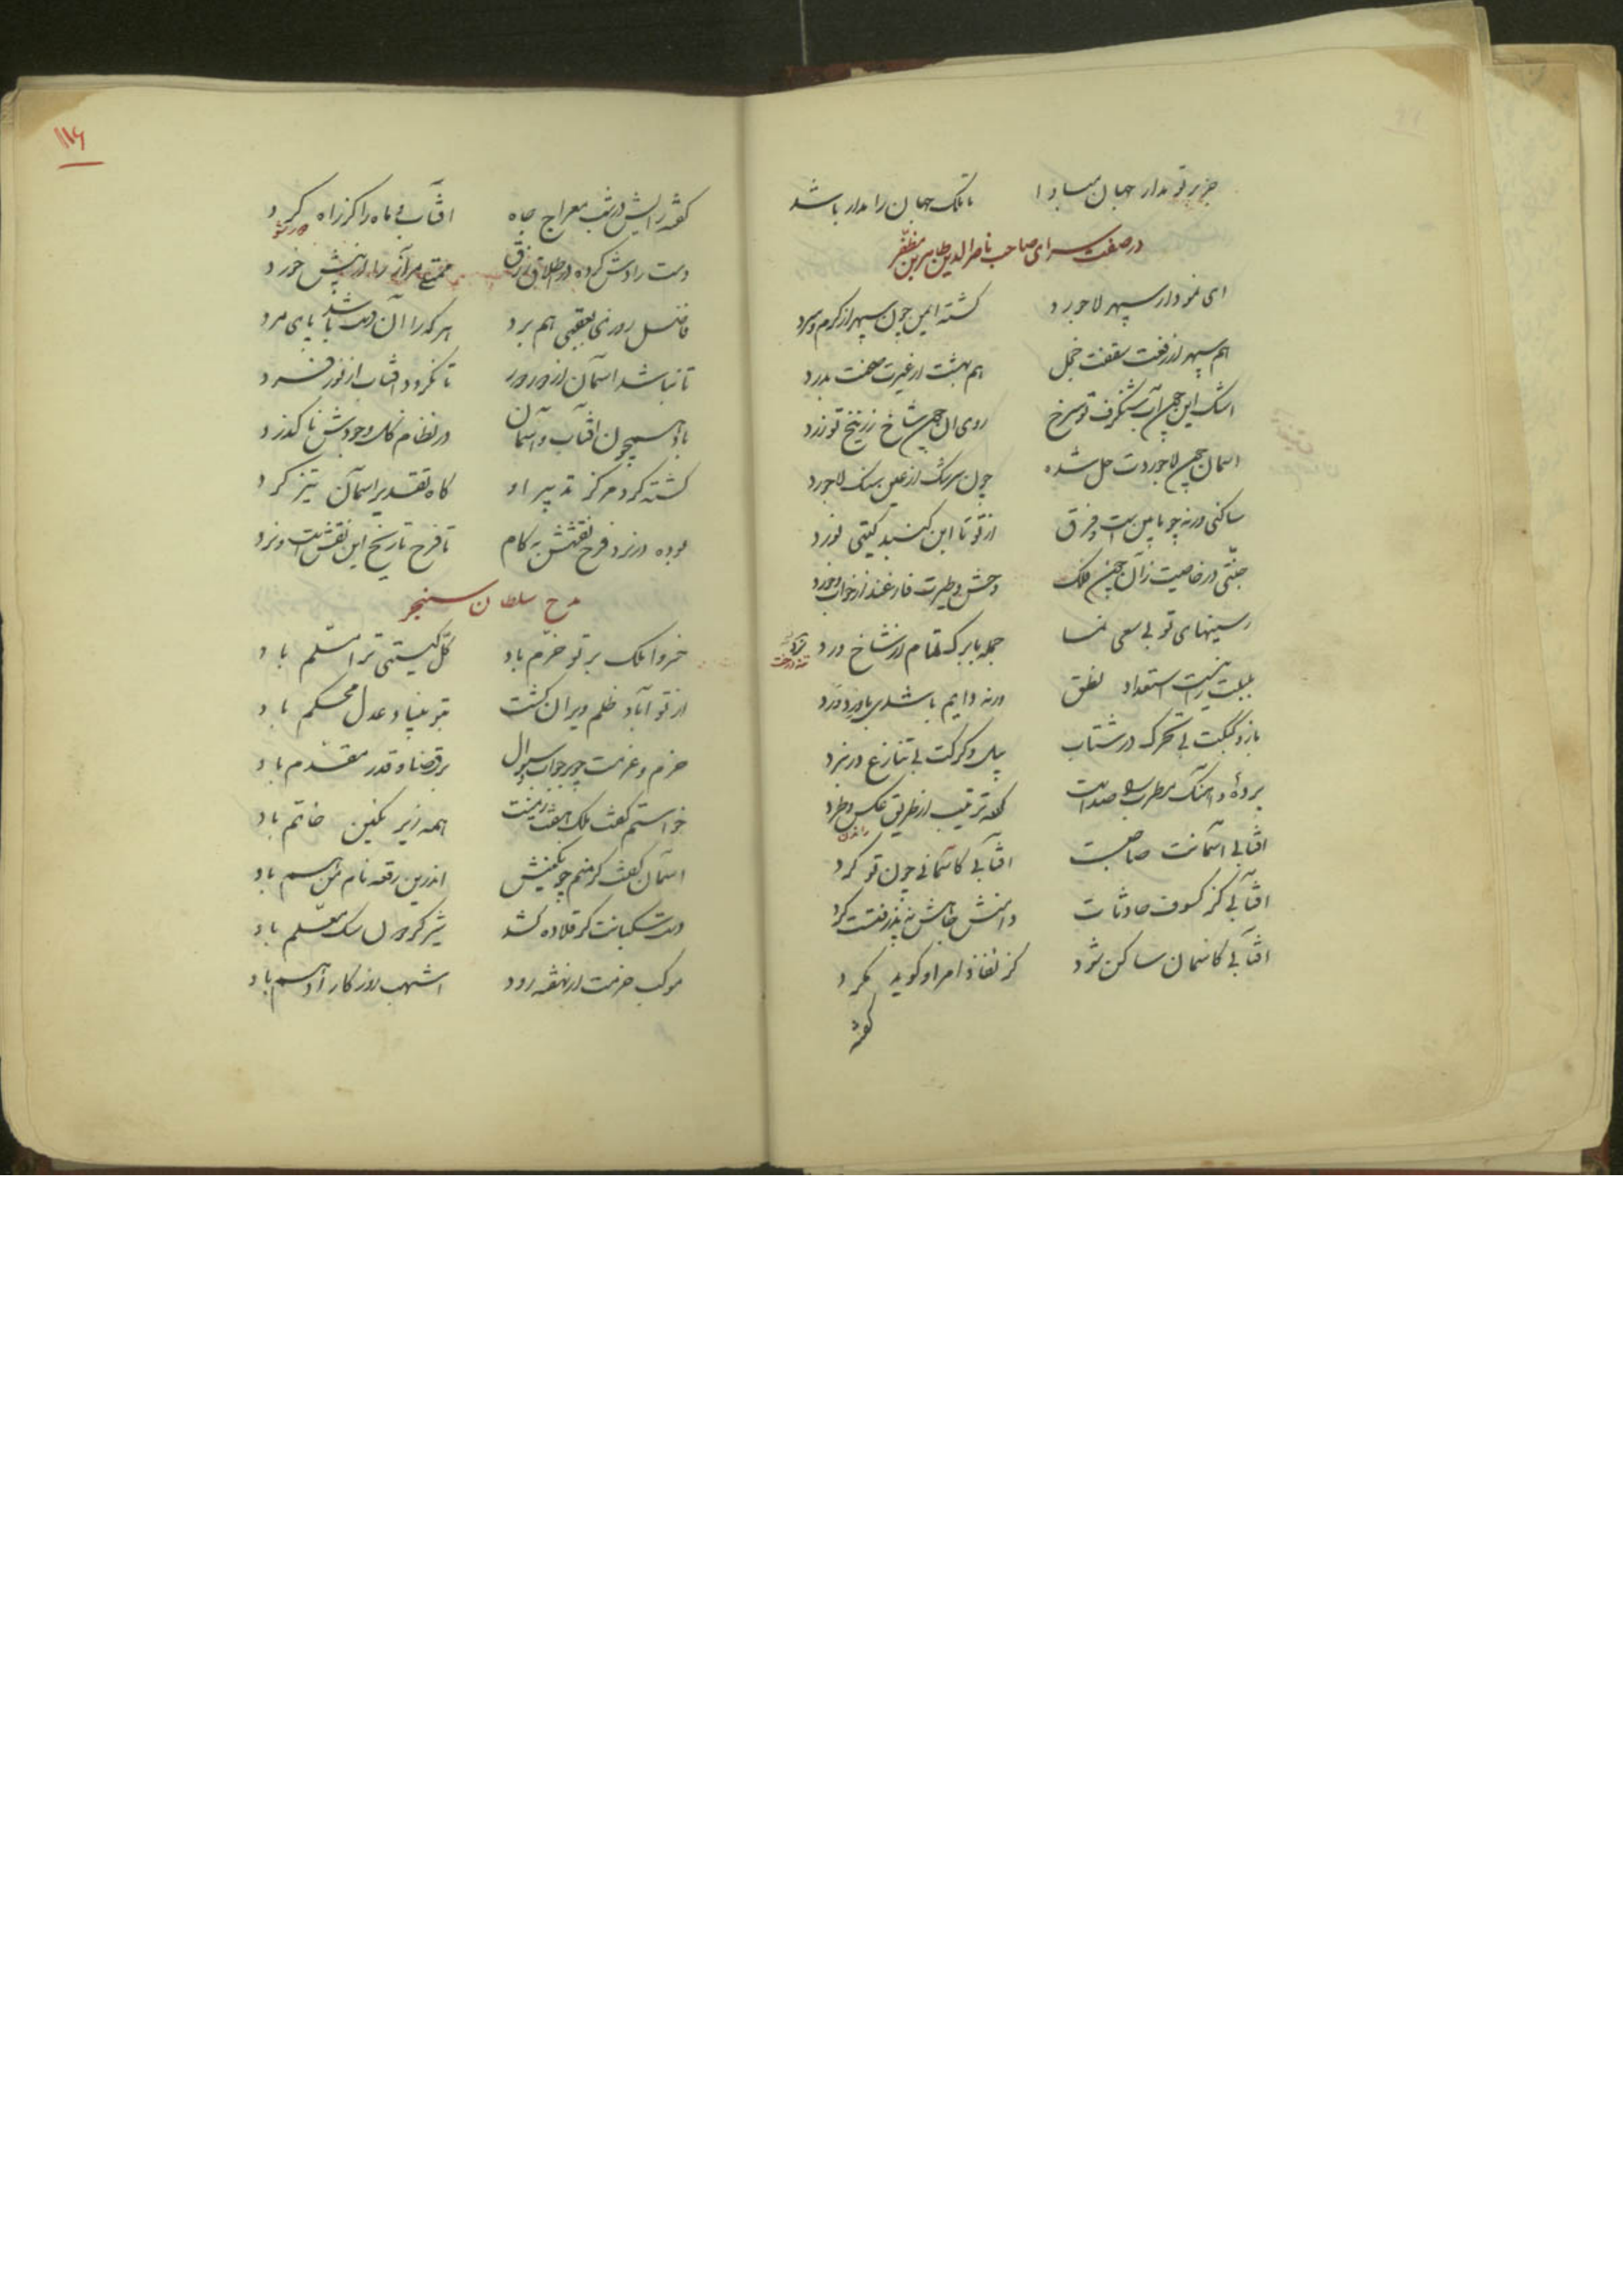 جز بر تو مدار جهان مبادا تا ملک جهان را مدار باشد
در صفت سرای صاحب ناصرالدین طاهر بن مظفر
ای نمودار سپهر لاجورد گشته ایمن چون سپهر از گرم و سرد
هم سپهر از رفعت سقفت خجل هم بهشت از غیرت صحنت بدرد
اشک این چون آب شنگرف تو سرخ روی آن چون شاخ زرنیخ تو زرد
آسمان چون لاجوردت حل شده چون سرشک از عین سنگ لاجورد
ساکنی ورنه چو ما بین است و فرق از تو تا این گنبد گیتی نورد
جنتی در خاصیت زان چون ملک وحش و طیرت فارغند از خواب و خورد
رستنیهای تو بی سعی نما جمله با برگ تمام از شاخ و رد
بلبلت را نیست استعداد نطق ورنه دایم باشدی با ورد ورد
باز و کبکت بی تحرک در شتاب پیل و کرگت بی تنازع در نبرد
پرده و آهنگ مطرب را صدات کرده ترتیب از طریق عکس و طرد
آفتابی آسمانت صاحبست آفتابی کاسمانی چون تو کرد
آفتابی کز کسوف حادثات دامنش خاشاک نپذرفتست گرد
آفتابی کاسمان ساکن شود کز نفاذ امر او گوید مگرد
گفته
۱۱۶
گفته رایش در شب معراج جاه آفتاب و ماه را کز راه گرد
دست رادش کرده در اطلاق رزق خورد
فاضل روزی بعقبی هم برد هر کرا آن دست باشد پای مرد
تا نباشد آسمان از دور دور تا نگردد آفتاب از نور فرد
باد همچون آفتاب و آسمان در نظام کل وجودش ناگذرد
گشته گرد مرکز تدبیر او گاه تقدیر آسمان تیز گرد
بوده در نرد فرح نقشش به کام تا فرح تاریخ این نقشست و نرد
مدح سلطان سنجر
خسروا ملک بر تو خرم باد کل گیتی ترا مسلم باد
از تو آباد ظلم ویران گشت بتو بنیاد عدل محکم باد
حزم و عزمت چو بر جواب سؤال بر قضا و قدر مقدم باد
خواستم گفت ملک هفت زمینت همه زیر نگین خاتم باد
آسمان گفت گر منم چو نگینش اندرین رقعه نام من هم باد
دست سگبانت گر قلاده کشد شیر گردون سگ معلم باد
موکب حزمت ار بنهفه رود اشهب روزگار ادهم باد